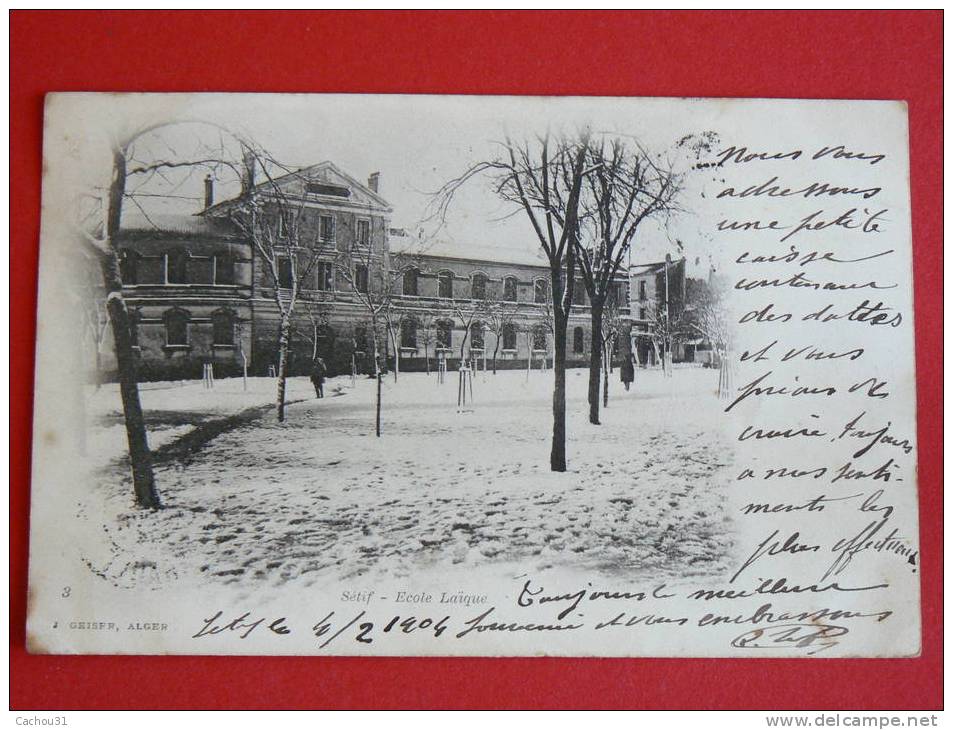 Nous vous
adressons
une petite
caisse
contenant
des dattes
et vous
prions de
croire toujours
à nos senti-
ments les
plus affectueux
3
Sétif - Ecole Laïque
Toujours le meilleur
J. GEISER, ALGER
Setif le 4/2 1904 Souvenir et vous embrassons
Cachou31
www.delcampe.net